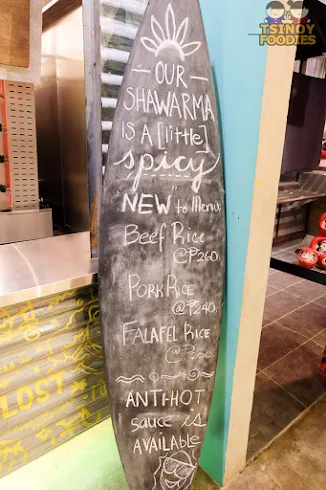 TSINOY
FOODIES
OUR
SHAWARMA
IS A [little]
spicy
NEW to Menu:
Beef Rice
@₱260.
Pork Rice
@₱240.
FALAFEL RICE
ANTI-HOT
sauce is
AVAILABLE
LOST